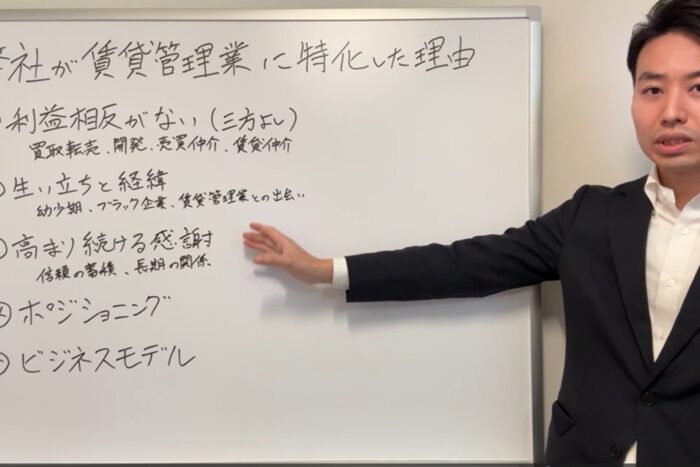 社が賃貸管理業に特化した理由
利益相反がない(三方よし)
買取転売、開発、売買仲介、賃貸仲介
生い立ちと経緯
幼少期、ブラック企業、賃貸管理業との出会い
高まり続ける感謝
信頼の蓄積、長期の関係
ポジショニング
ビジネスモデル